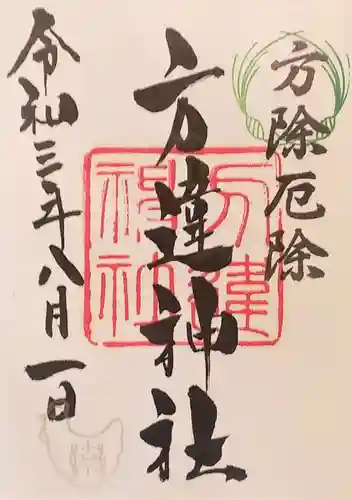 方除厄除
方違神社
令和三年八月一日
方違神社